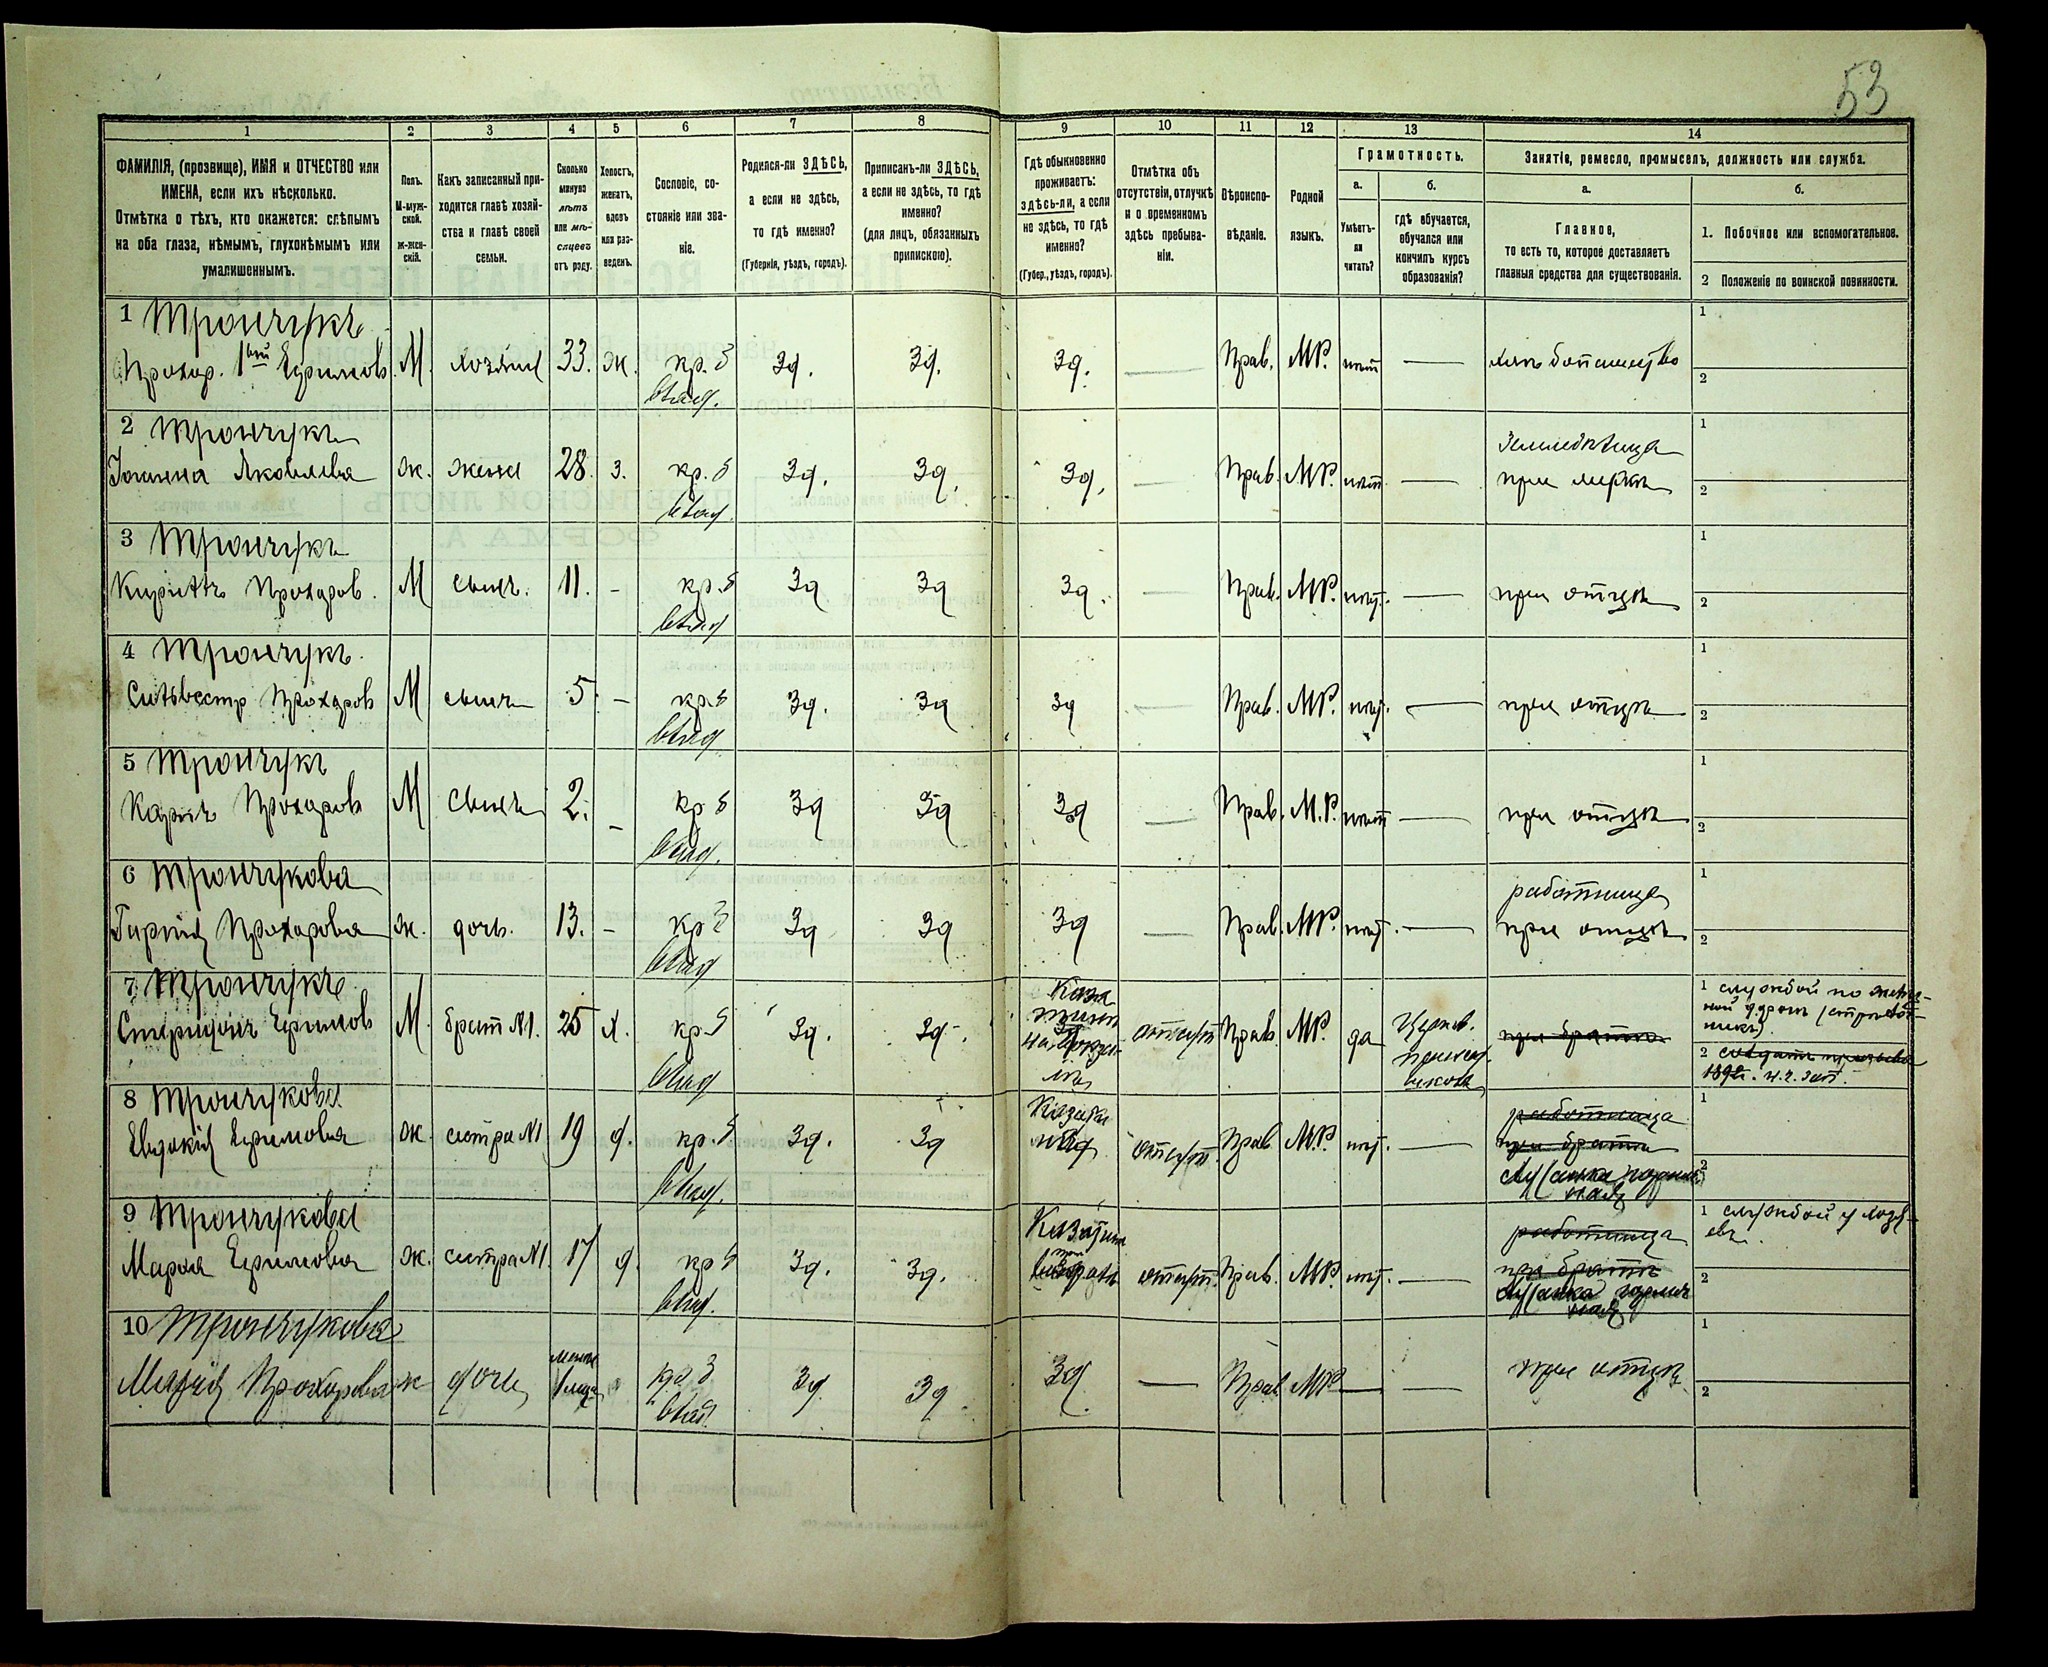 53
1 2 3 4 5 6 7 8 9 10 11 12 13 14
ФАМИЛІЯ, (прозвище), ИМЯ и ОТЧЕСТВО или
ИМЕНА, если ихъ нѣсколько.
Отмѣтка о тѣхъ, кто окажется: слѣпымъ
на оба глаза, нѣмымъ, глухонѣмымъ или
умалишеннымъ.
Полъ.
М-муж-
ской.
Ж-жен-
скій.
Какъ записанный при-
ходится главѣ хозяй-
ства и главѣ своей
семьи.
Сколько
минуло
лѣтъ
или мѣ-
сяцевъ
отъ роду.
Холостъ,
женатъ,
вдовъ
или раз-
веденъ.
Сословіе, со-
стояніе или зва-
ніе.
Родился-ли ЗДѢСЬ,
а если не здѣсь,
то гдѣ именно?
(Губернія, уѣздъ, городъ).
Приписанъ-ли ЗДѢСЬ,
а если не здѣсь, то гдѣ
именно?
(для лицъ, обязанныхъ
припискою).
Гдѣ обыкновенно
проживаетъ:
здѣсь-ли, а если
не здѣсь, то гдѣ
именно?
(Губер., уѣздъ, городъ).
Отмѣтка объ
отсутствіи, отлучкѣ
и о временномъ
здѣсь пребыва-
ніи.
Вѣроиспо-
вѣданіе.
Родной
языкъ.
Грамотность.
а.
Умѣетъ-
ли
читать?
б.
гдѣ обучается,
обучался или
кончилъ курсъ
образованія?
Занятіе, ремесло, промыселъ, должность или служба.
а.
Главное,
то есть то, которое доставляетъ
главныя средства для существованія.
б.
1. Побочное или вспомогательное.
2 Положеніе по воинской повинности.
1 Трончукъ
Прохор. 1ый Ефимов. М. хозяин 33. ж. кр. з влад. Зд. Зд. Зд. — Прав. МР. нѣт — хлѣбопашество
1
2
2 Трончукъ
Іоанна Яковлева ж. жена 28. з. кр. з влад. Зд. Зд. Зд. Прав. МР. нѣт. — Земледѣлица
при мужѣ
1
2
3 Трончукъ
Кириллъ Прохоров. М сынъ. 11. - кр. з влад Зд Зд Зд. — Прав. МР. нѣт. — при отцѣ
1
2
4 Трончукъ.
Сильвестр Прохоров М сынъ 5. - кр. з влад Зд. Зд Зд — Прав. МР. нѣт. — при отцѣ
1
2
5 Трончукъ
Карпъ Прохоров М сынъ 2. - кр. з влад. Зд Зд Зд — Прав. М.Р. нѣт — при отцѣ
1
2
6 Трончукова
Прохорова ж. дочь. 13. - кр з влад Зд Зд Зд — Прав. МР. нѣт. — работница
при отцѣ
1
2
7 Трончукъ
Ефимов М. брат №1. 25 х. кр. з влад Зд. Зд. отсут. Прав. МР. да Церков.
приход.
школа
при братѣ
1 службой по желѣз-
ной дорогѣ
2 189
8 Трончукова
Евдокія Ефимовна ж. сестра №1 19 д. кр. з влад. Зд. Зд отсут. Прав МР. нѣт. — работница
при братѣ
1
2
9 Трончукова
Мария Ефимовна ж. сестра №1. 17 д. кр з влад. Зд. Зд. отсут. Прав. МР. нѣт. — работница
при братѣ
1 службой у
2
10 Трончукова
Марія Прохорова ж дочь менѣе
1 кр. з влад. Зд. Зд. Зд. — Прав МР — — при отцѣ
1
2